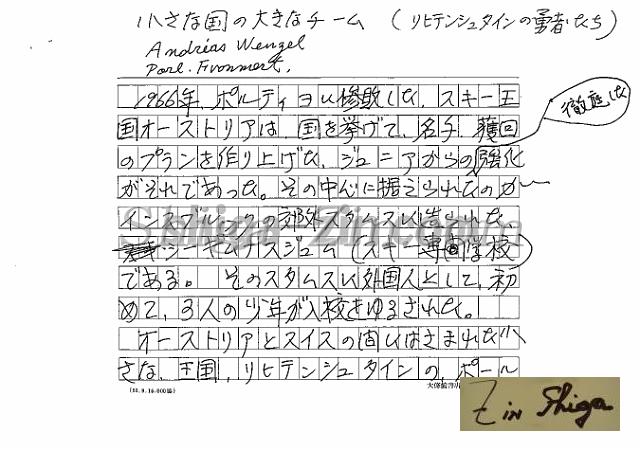 小さな国の大きなチーム (リヒテンシュタインの勇者たち)
Andrias Wenzel
Paol. Frommert.
1966年、ポルティヨに惨敗した、スキー王
国オーストリアは、国を挙げて、名手 獲回
のプランを作り上げた、ジュニアからの強化
徹底した
がそれであった。その中心に据えられたのが
インスブルックの郊外スタムスに造られた、
シーギムナスジューム(スキー専門学校)
である。 そのスタムスに外国人として、初
めて、3人の少年が入校をゆるされた。
オーストリアとスイスの間にはさまれた小
さな、王国、リヒテンシュタインの、ポール
Shiga Zin
Z in Shiga